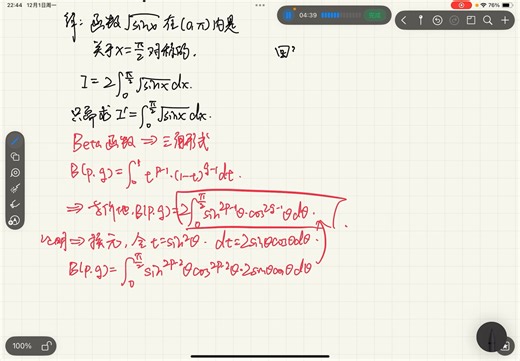 22:44 12月1日周一
76%
04:39
解: 函数√sinx 在(0,π)内是
关于x=π/2对称的.
I=2∫₀^{π/2}√sinx dx.
只需求 I'=∫₀^{π/2}√sinx dx.
Beta 函数 ⇒ 三角形式
B(p.q)=∫₀¹ t^{p-1}·(1-t)^{q-1}dt.
⇒ B(p.q)=2∫₀^{π/2}sin^{2p-1}θ·cos^{2q-1}θdθ.
证明⇒换元, 令t=sin²θ. dt=2sinθcosθdθ
B(p.q)=∫₀^{π/2}sin^{2p-2}θcos^{2q-2}θ·2sinθcosθdθ
100%